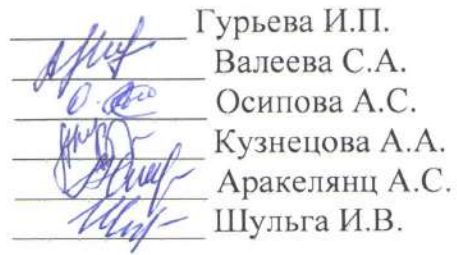 Гурьева И.П.
Валеева С.А.
Осипова А.С.
Кузнецова А.А.
Аракелянц А.С.
Шульга И.В.